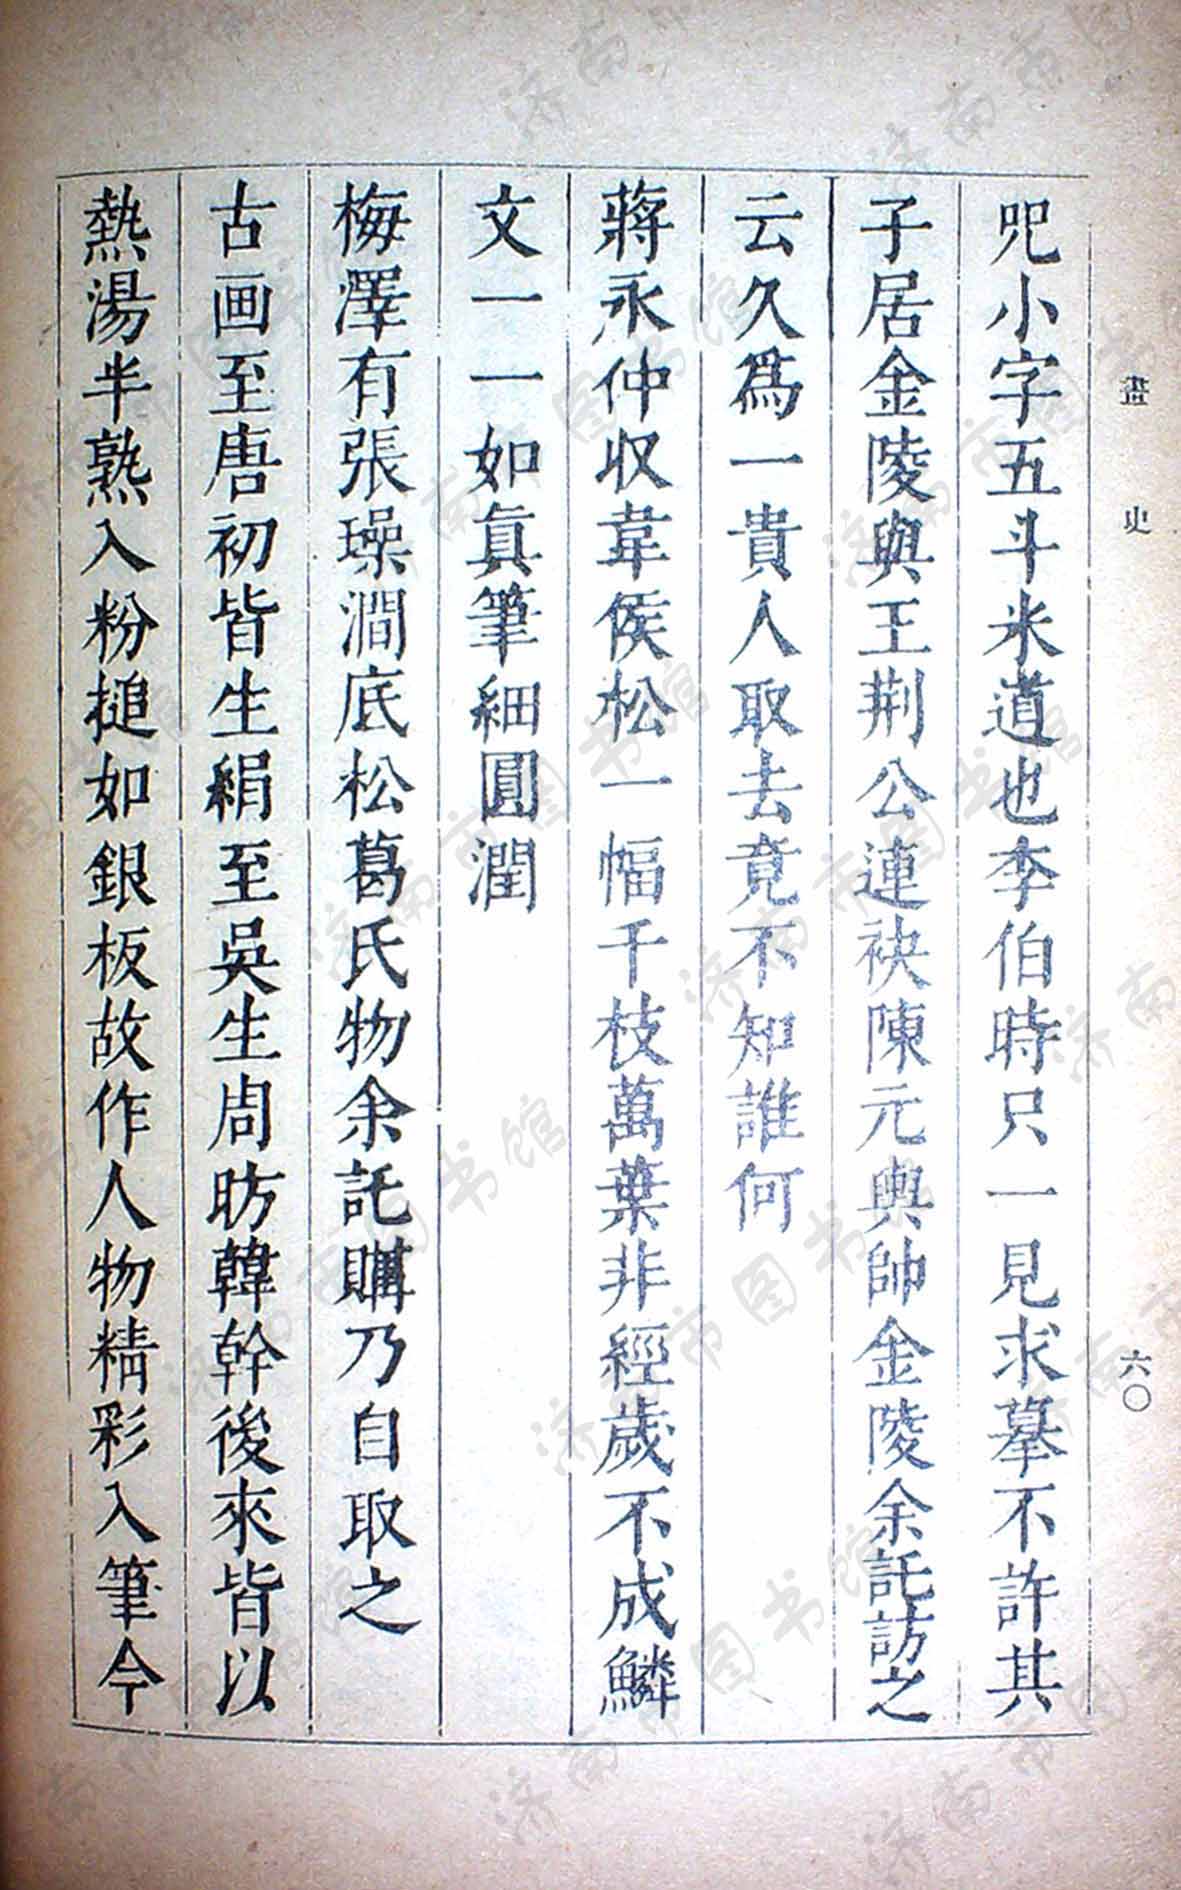 畫史
六〇
咒小字五斗米道也李伯時只一見求摹不許其
子居金陵與王荆公連袂陳元輿帥金陵余託訪之
云久爲一貴人取去竟不知誰何
蔣永仲収韋侯松一幅千枝萬葉非經歲不成鱗
文一一如眞筆細圓潤
梅澤有張璪澗底松葛氏物余託購乃自取之
古画至唐初皆生絹至吳生周昉韓幹後來皆以
熱湯半熟入粉搥如銀板故作人物精彩入筆今
济南市图书馆